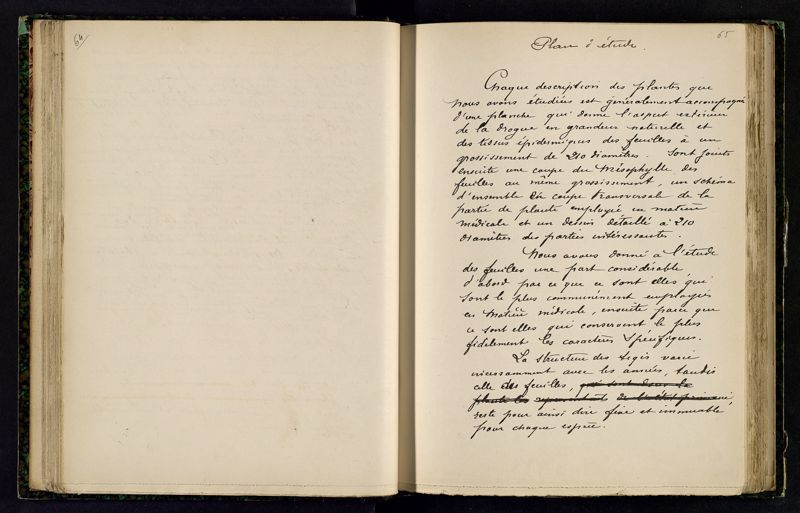 64
65
Plan d'étude.
Chaque description des plantes que
nous avons étudiées est généralement accompagnée
d'une planche qui donne l'aspect extérieur
de la drogue en grandeur naturelle et
des tissus épidermiques des feuilles à un
grossissement de 210 diamètres. Sont joints
ensuite une coupe du Mésophylle des
feuilles au même grossissement, un schéma
d'ensemble de coupe transversale de la
partie de plante employée en matière
médicale et un dessin détaillé à 210
diamètres des parties intéressantes.
Nous avons donné à l'étude
des feuilles une part considérable
d'abord par ce que ce sont elles qui
sont le plus communément employées
en Matière médicale, ensuite parce que
ce sont elles qui conservent le plus
fidèlement les caractères spécifiques.
La structure des tiges varie
incessamment avec les années, tandis
celle des feuilles, qui sont dans la
plante les
reste pour ainsi dire fixe et immuable,
pour chaque espèce.